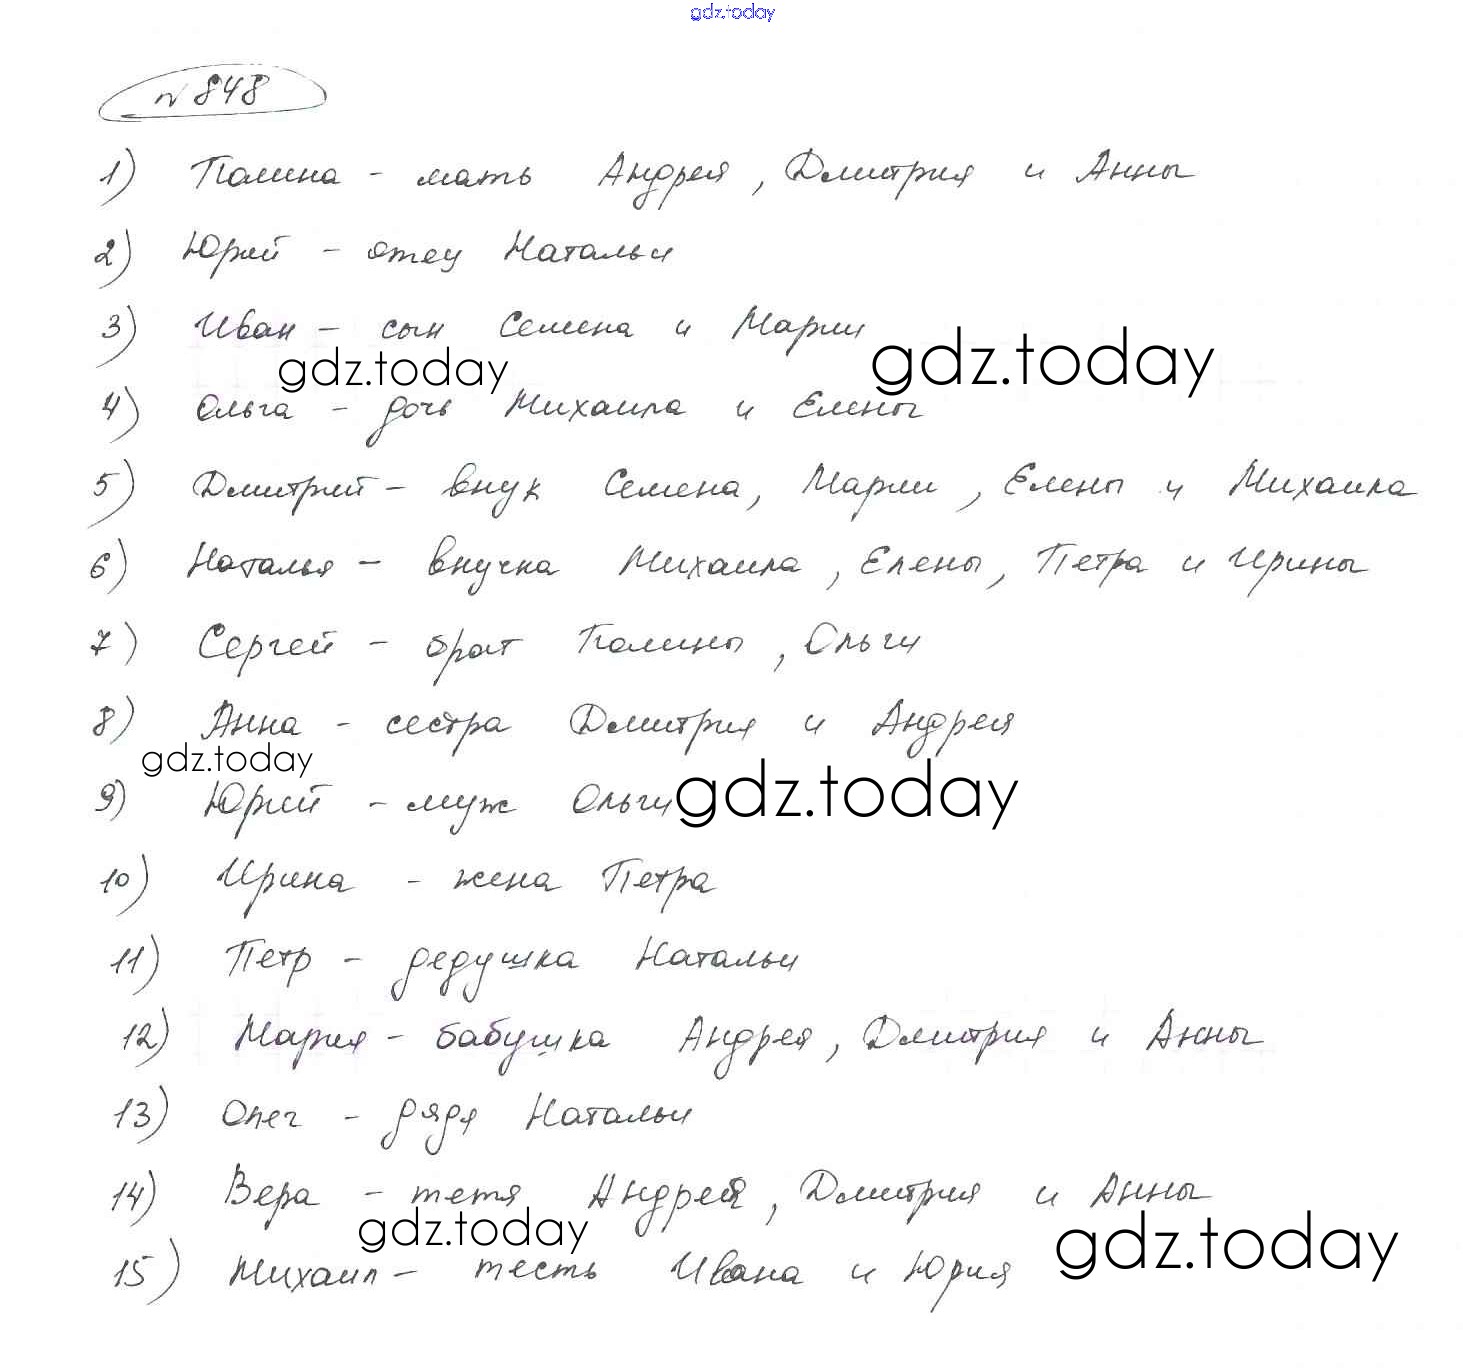 gdz.today
№ 848
1) Полина - мать Андрея, Дмитрия и Анны
2) Юрий - отец Натальи
3) Иван - сын Семена и Марии
gdz.today gdz.today
4) Ольга - дочь Михаила и Елены
5) Дмитрий - внук Семена, Марии, Елены и Михаила
6) Наталья - внучка Михаила, Елены, Петра и Ирины
7) Сергей - брат Полины, Ольги
8) Анна - сестра Дмитрия и Андрея
gdz.today
9) Юрий - муж Ольги gdz.today
10) Ирина - жена Петра
11) Петр - дедушка Натальи
12) Мария - бабушка Андрея, Дмитрия и Анны
13) Олег - дядя Натальи
14) Вера - тетя Андрея, Дмитрия и Анны
gdz.today gdz.today
15) Михаил - тесть Ивана и Юрия